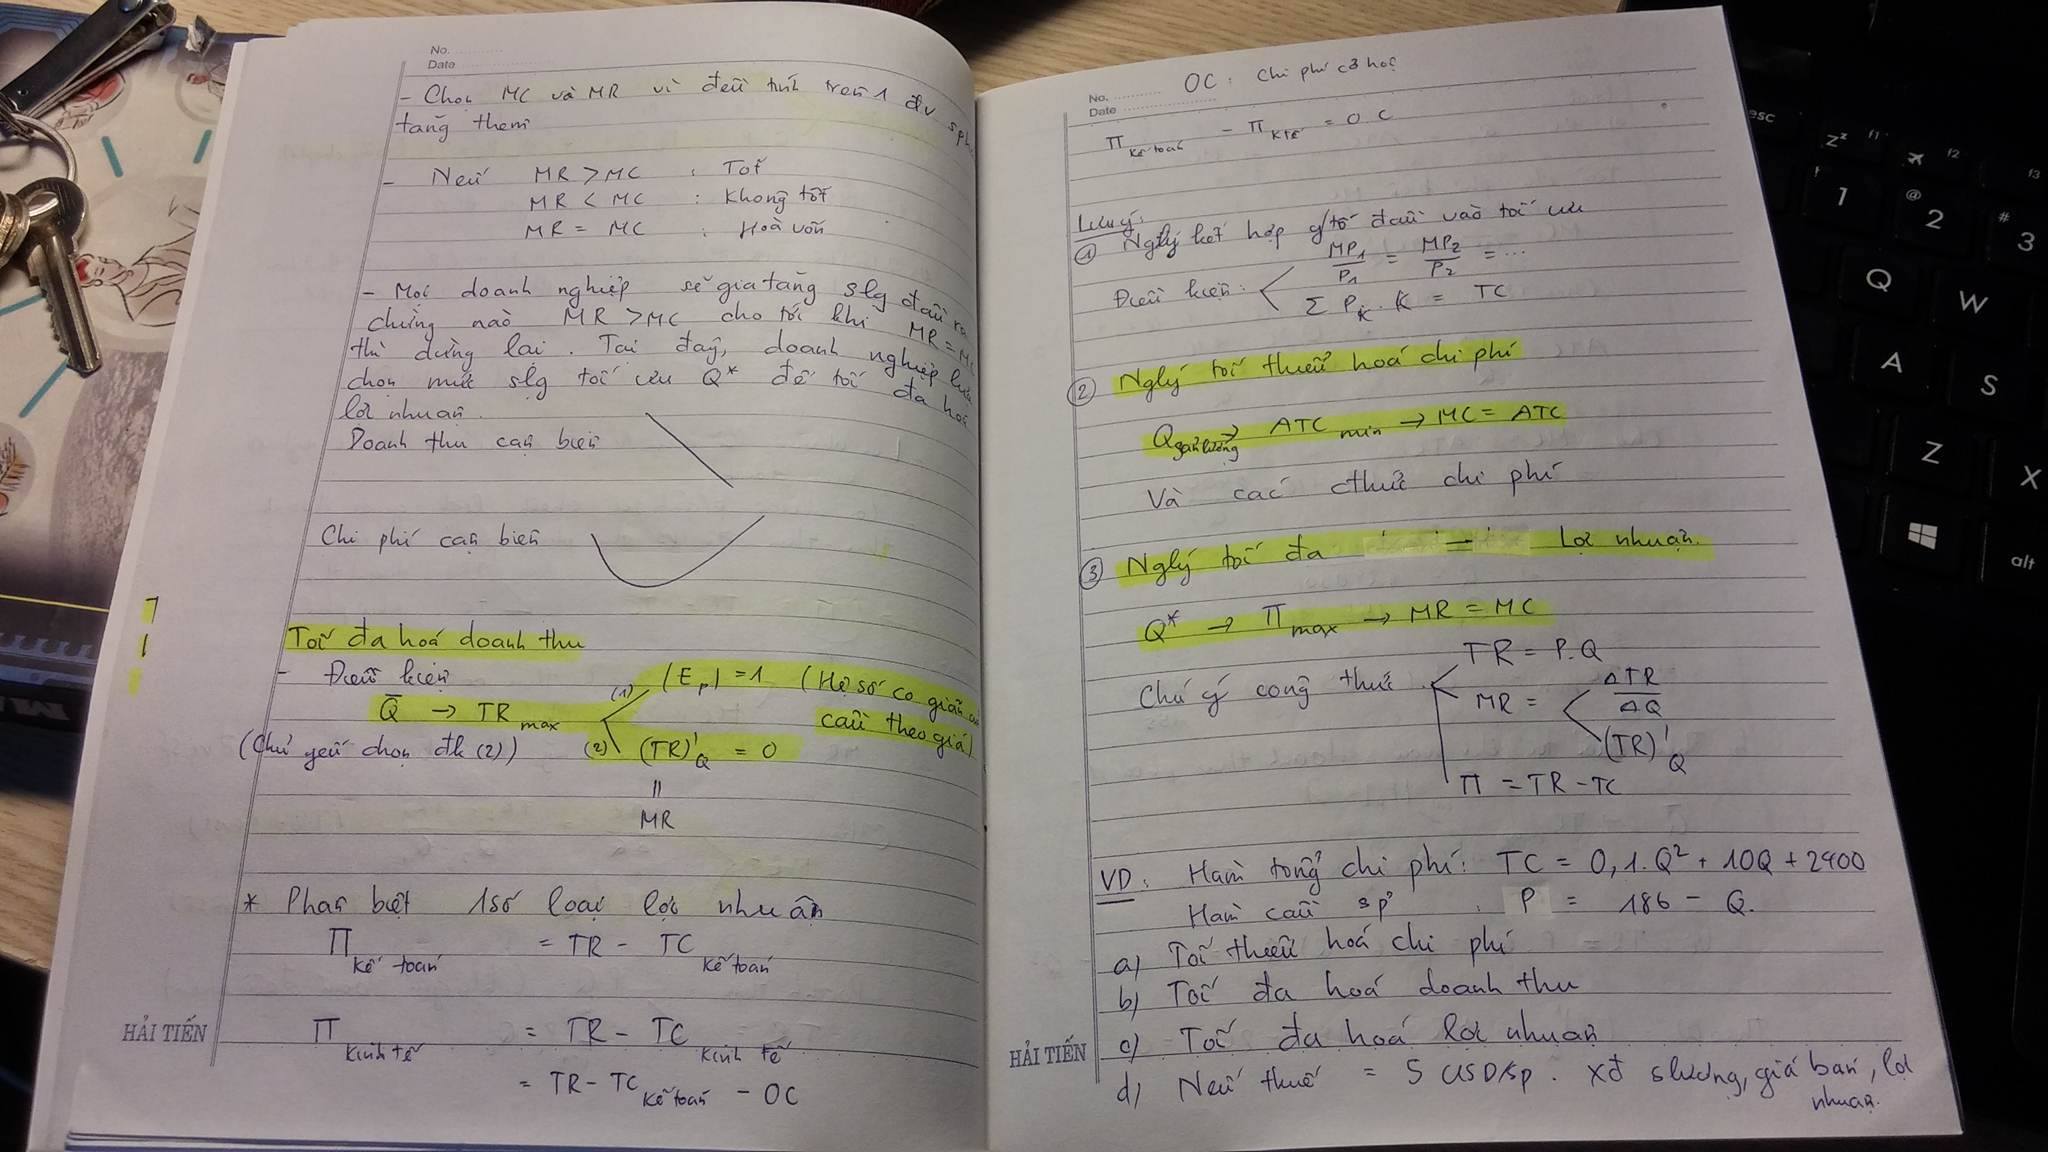 No.
Date
- Chọn MC và MR vì đều tính trên 1 đv sph
tăng thêm
- Nếu MR > MC : Tốt
MR < MC : Không tốt
MR = MC : Hoà vốn
- Mọi doanh nghiệp sẽ gia tăng slg đầu ra
chừng nào MR > MC cho tới khi MR = M
thì dừng lại. Tại đây, doanh nghiệp
chọn mức slg tối ưu Q* để tối đa hoá
lợi nhuận.
Doanh thu cận biên
Chi phí cận biên
Tối đa hoá doanh thu
- Điều kiện
Q̅ → TR max (1) |Ep| = 1 (Hệ số co giãn
cầu theo giá)
(Chủ yếu chọn đk (2)) (2) (TR)'Q = 0
=
MR
* Phân biệt 1 số loại lợi nhuận
Π kế toán = TR - TC kế toán
Π kinh tế = TR - TC kinh tế
= TR - TC kế toán - OC
HẢI TIẾN
No.
Date
OC : Chi phí cơ hội
Π kế toán - Π ktế = OC
Lưu ý:
① Nglý kết hợp y/tố đầu vào tối ưu
Điều kiện: MP1/P1 = MP2/P2 = ...
Σ PK . K = TC
② Nglý tối thiểu hoá chi phí
Q sản lượng → ATC min → MC = ATC
Và các cthức chi phí
③ Nglý tối đa lợi nhuận.
Q* → Π max → MR = MC
Chú ý công thức TR = P.Q
MR = ΔTR/ΔQ
(TR)'Q
Π = TR - TC
VD: Hàm tổng chi phí: TC = 0,1.Q² + 10Q + 2400
Hàm cầu sp : P = 186 - Q.
a) Tối thiểu hoá chi phí
b) Tối đa hoá doanh thu
c) Tối đa hoá lợi nhuận
d) Nếu thuế = 5 USD/sp. xđ slượng, giá bán, lợi
nhuận.
HẢI TIẾN
esc
f2
f3
1
@
2
#
3
Q
W
A
S
Z
X
alt